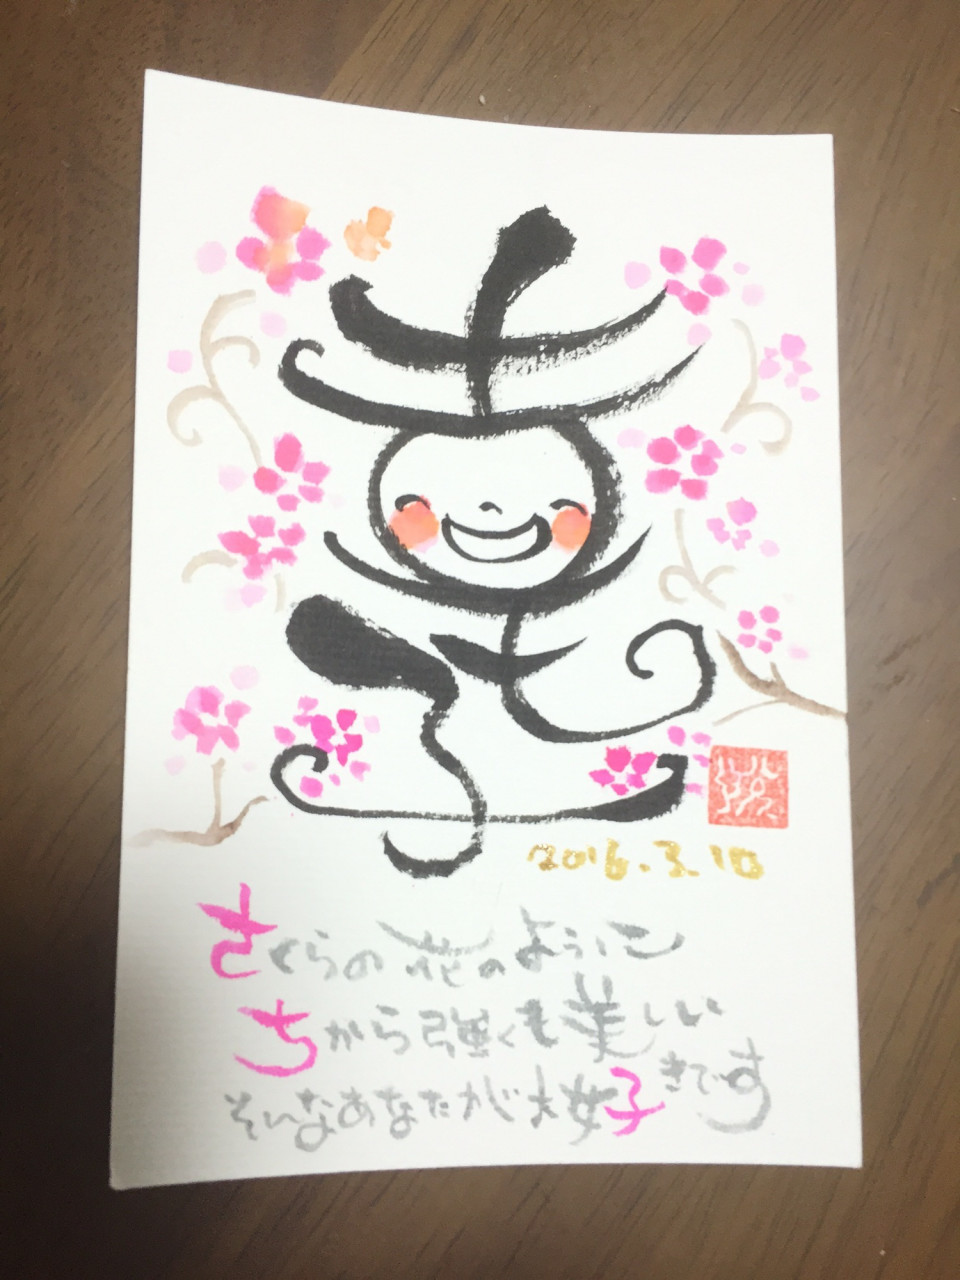 幸子
2016.3.10
さくらの花のように
ちから強くも美しい
そんなあなたが大好きです